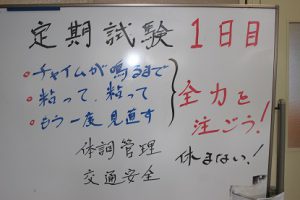 定期試験 1日目
○チャイムが鳴るまで
○粘って、粘って
○もう一度見直す
全力を
注ごう!
体調管理
交通安全
休まない!